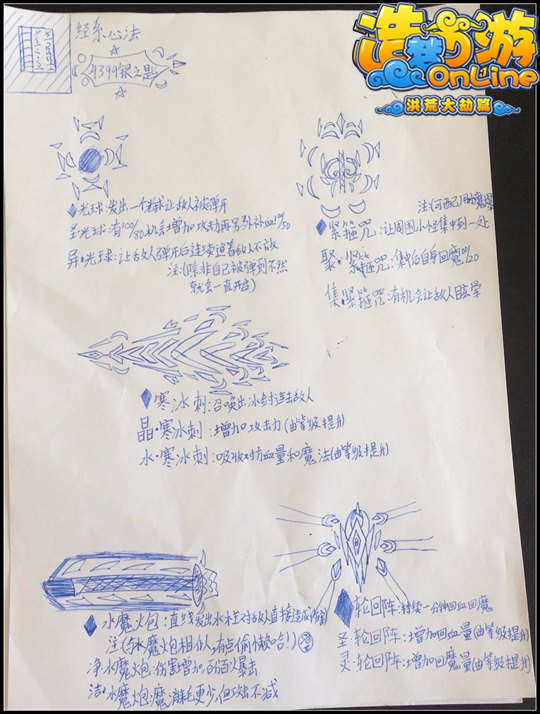 造梦西游
OnLine
洪荒大劫篇
经系心法
4399银之思
光球:发出一个光球让敌人被弹开
圣光球:有
机会增加攻击
异·光球:让敌人弹开后连续追着敌人不放
法:(除非自己被弹到不然
就会一直
紧箍咒:让周围小怪集中到一处
聚·紧箍咒:
后自身回魔
集·紧箍咒:有机会让敌人眩晕
寒冰刺:召唤出冰刺连击敌人
晶·寒冰刺:增加攻击力(由等级提升)
水·寒冰刺:吸收对方血量和魔法(由等级提升)
水魔火包:直线发出水柱对敌人直接造成伤害
注(与水魔炮相似,有点偷懒哈!)
净·水魔火炮:伤害增加
暴击
洁·水魔炮:魔消耗更少,但
不减
轮回阵:持续一分钟回血回魔
圣·轮回阵:增加回血量(由等级提升)
灵·轮回阵:增加回魔量(由等级提升)